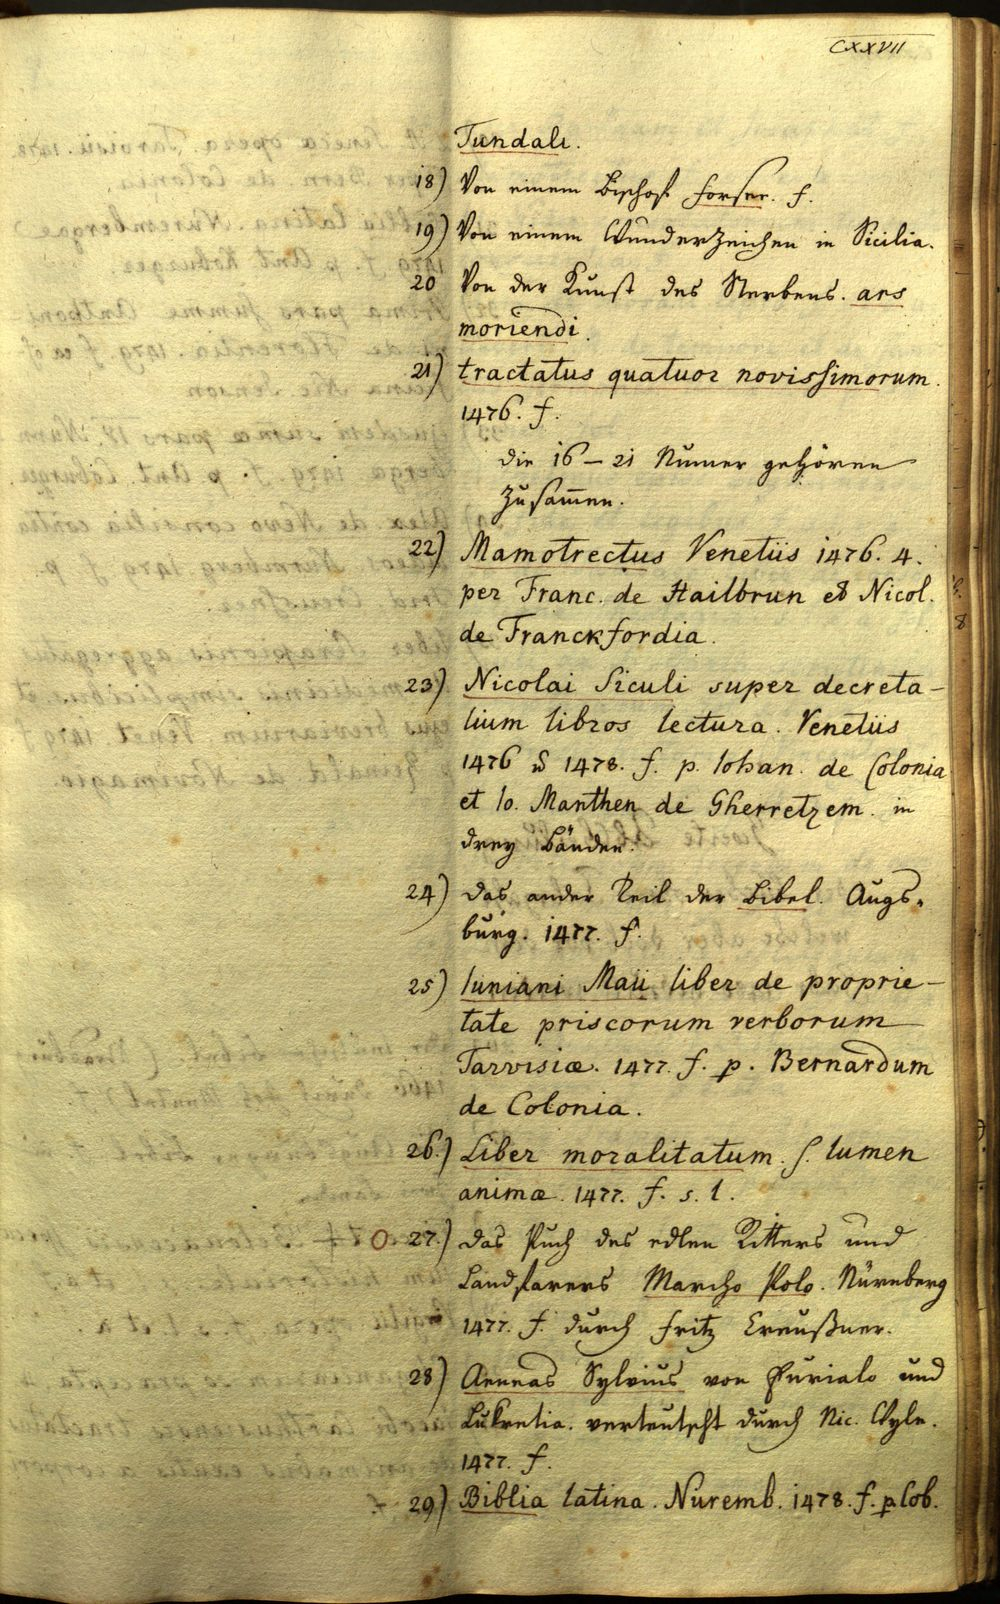 CXXVII
Tundali.
18) Von einem Bischof Forser. f.
19) Von einem Wunderzeichen in Sicilia.
20 Von der Kunst des Sterbens. ars
moriendi.
21) tractatus quatuor novissimorum.
1476. f.
die 16 – 21 Numer gehören
zusam̄en.
22) Mamotrectus Venetiis 1476. 4.
per Franc. de Hailbrun et Nicol.
de Franckfordia.
23) Nicolai Siculi super decreta-
lium libros lectura. Venetiis
1476 & 1478. f. p. Iohan. de Colonia
et Io. Manthen de Gherretzem. in
drey Bänden.
24) das ander Teil der Bibel. Augs-
burg. 1477. f.
25) Iuniani Maii liber de proprie-
tate priscorum verborum
Tarvisiæ. 1477. f. p. Bernardum
de Colonia.
26.) Liber moralitatum. s. lumen
animæ. 1477. f. s. l.
O 27.) das Puch des edlen Ritters und
Landfarers Marcho Polo. Nürnberg
1477. f. durch Fritz Creußner.
28) Aeneas Sylvius von Eurialo und
Lukretia. verteutscht durch Nic. Wyle.
1477. f.
29) Biblia latina. Nuremb. 1478. f. p Cob.